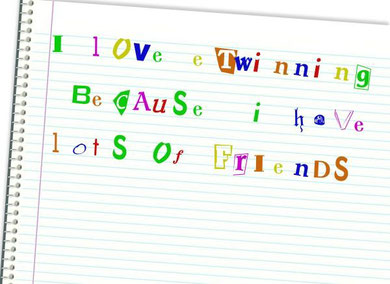 I lOve eTwinning
BeCAuSe i haVe
lotS Of FrIenDS